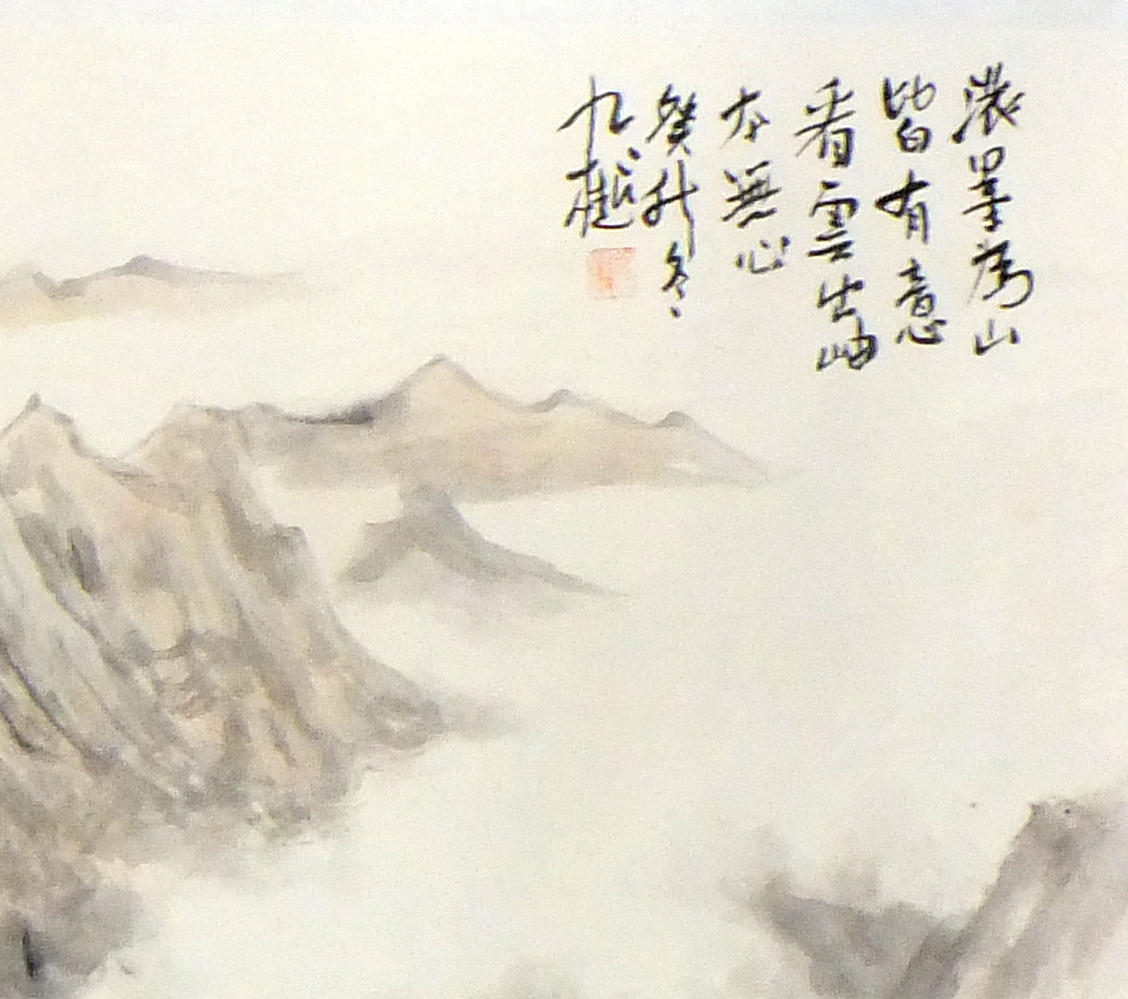 濃墨為山
皆有意
看雲出岫
本無心
癸卯冬
九樾